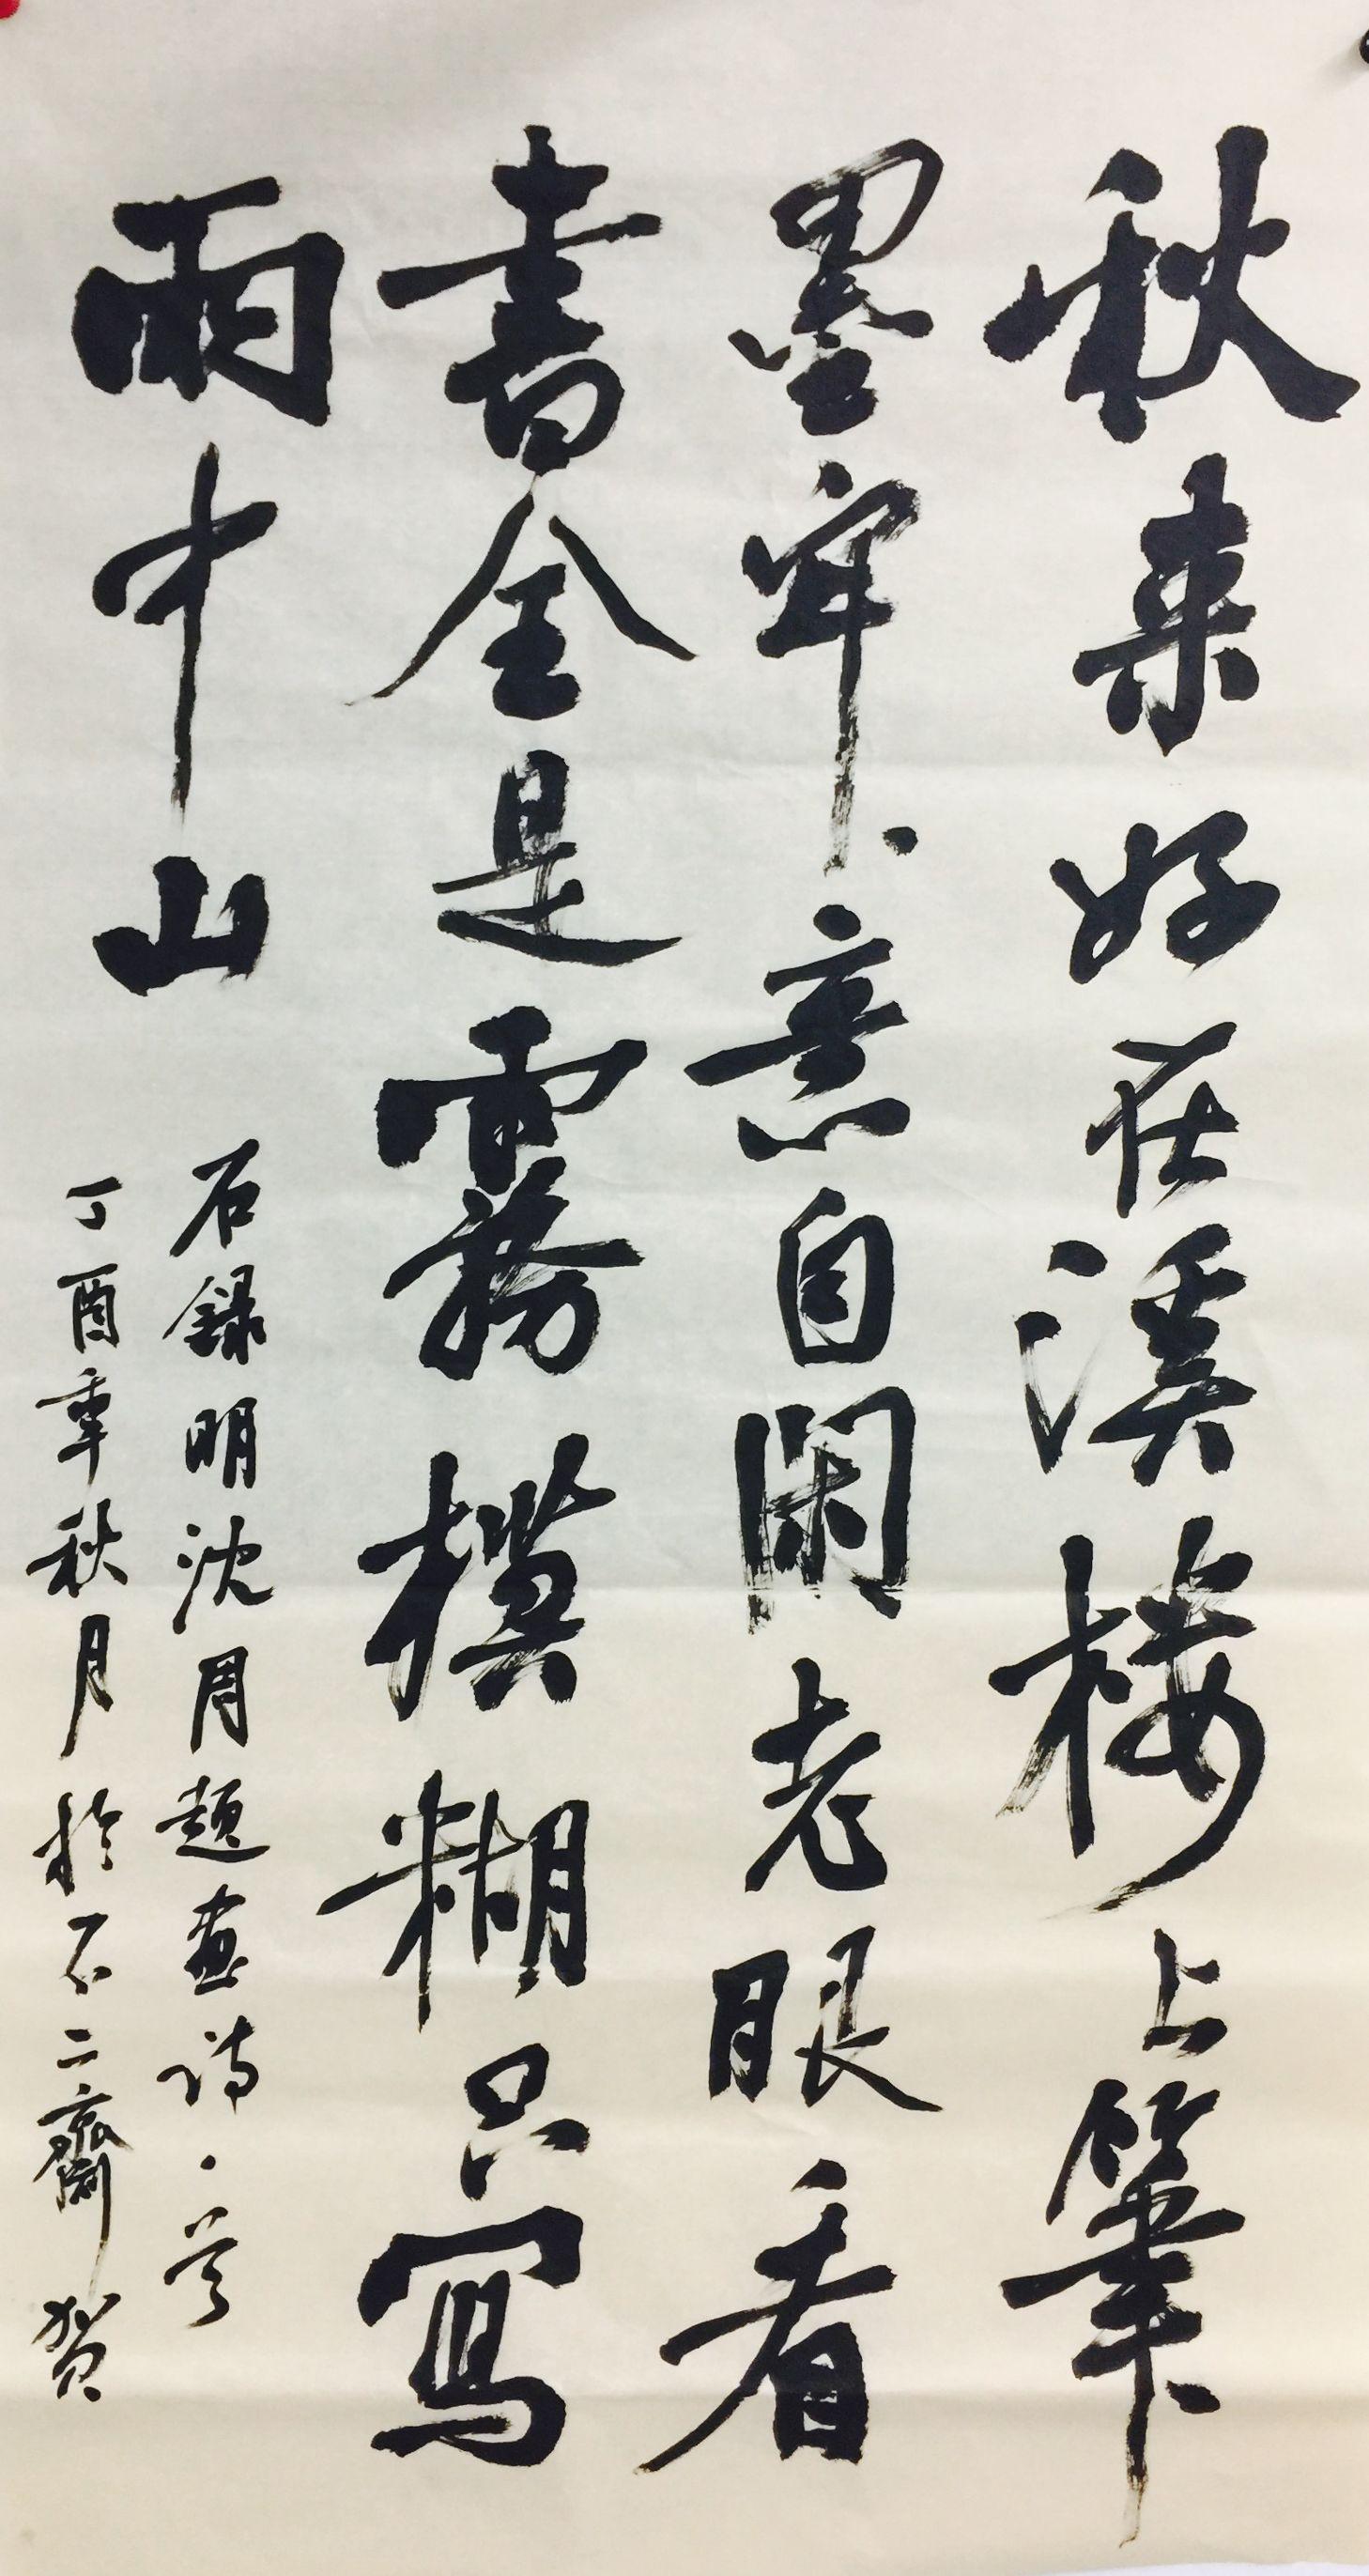 秋来好在溪楼上筆
墨牢々意自閑老眼看
書全是霧模糊只寫
雨中山
右録明沈周題畫詩一首
丁酉季秋月於不二齋賀